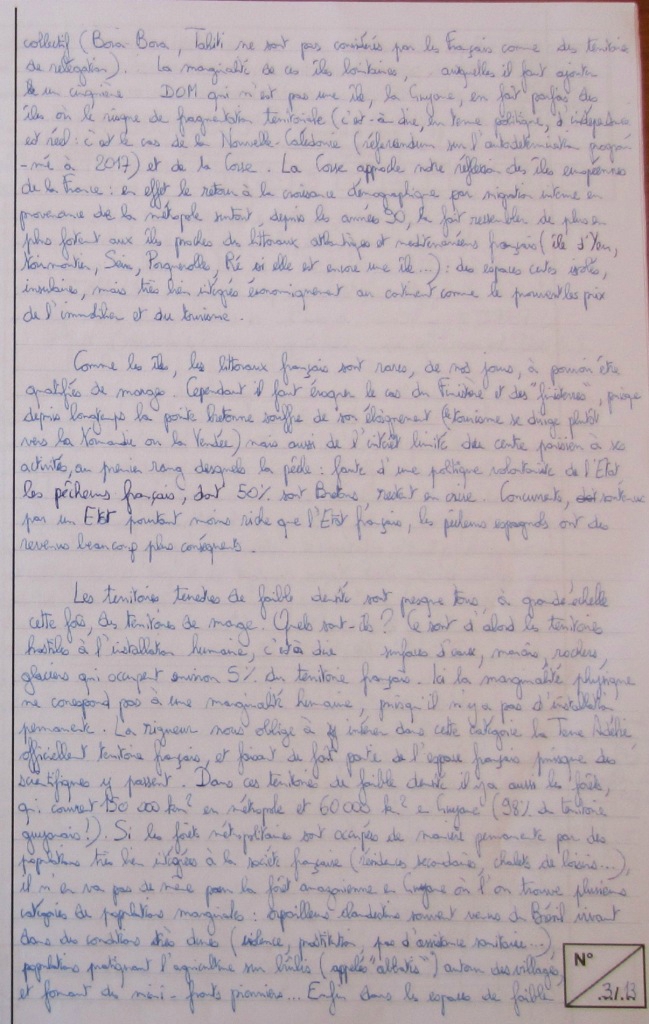 collectif (Bora-Bora, Tahiti ne sont pas considérés par les Français comme des territoires
de relégation). La marginalité de ces îles lointaines, auxquelles il faut ajouter
un cinquième DOM qui n'est pas une île, la Guyane, en fait parfois des
îles où le risque de fragmentation territoriale (c'est-à-dire, en terme politique, d'indépendance
est réel : c'est le cas de la Nouvelle-Calédonie (référendum sur l'autodétermination program
-mé à 2017) et de la Corse. La Corse approche notre réflexion des îles européennes
de la France : en effet le retour à la croissance démographique par migration interne en
provenance de la métropole surtout, depuis les années 90, la fait ressembler de plus en
plus fortement aux îles proches des littoraux atlantiques et méditerranéens français (île d'Yeu,
Noirmoutier, Sein, Porquerolles, Ré si elle est encore une île...) : des espaces certes isolés,
insulaires, mais très bien intégrés économiquement au continent comme le prouvent les prix
de l'immobilier et du tourisme.
Comme les îles, les littoraux français sont rares, de nos jours, à pouvoir être
qualifiés de marges. Cependant il faut évoquer le cas du Finistère et des "finisterres",
depuis longtemps la pointe bretonne souffre de son éloignement (le tourisme se dirige plutôt
vers la Normandie ou la Vendée) mais aussi de l'intérêt limité du centre parisien à ses
activités, au premier rang desquels la pêche : faute d'une politique volontariste de l'Etat
les pêcheurs français, dont 50% sont Bretons, restent en crise. Concurrents, soutenus
par un Etat pourtant moins riche que l'Etat français, les pêcheurs espagnols ont des
revenus beaucoup plus conséquents.
Les territoires terrestres de faible densité sont presque tous, à grande échelle
cette fois, des territoires de marge. Quels sont-ils ? Ce sont d'abord les territoires
hostiles à l'installation humaine, c'est à dire surfaces d'eaux, marais, rochers,
glaciers qui occupent environ 5% du territoire français. Ici la marginalité physique
ne correspond pas à une marginalité humaine, puisqu'il n'y a pas d'installation
permanente. La rigueur nous oblige à insérer dans cette catégorie la Terre Adélie,
officiellement territoire français, et faisant de fait partie de l'espace français puisque des
scientifiques y passent. Dans ces territoires de faible densité il y a aussi les forêts,
qui couvrent 150 000 km² en métropole et 60 000 k² en Guyane (98% du territoire
guyanais !). Si les forêts métropolitaines sont occupées de manière permanente par des
populations très bien intégrées à la société française (résidences secondaires, chalets de loisirs...),
il n'en va pas de même pour la forêt amazonienne en Guyane où l'on trouve plusieurs
catégories de populations marginales : orpailleurs clandestins souvent venus du Brésil vivant
dans des conditions très dures (violence, prostitution, pas d'assistance sanitaire...),
populations pratiquant l'agriculture sur brûlis (appelés "abattis") autour des villages,
et formant des mini-fronts pionniers... Enfin dans les espaces de faible
N°
3/13